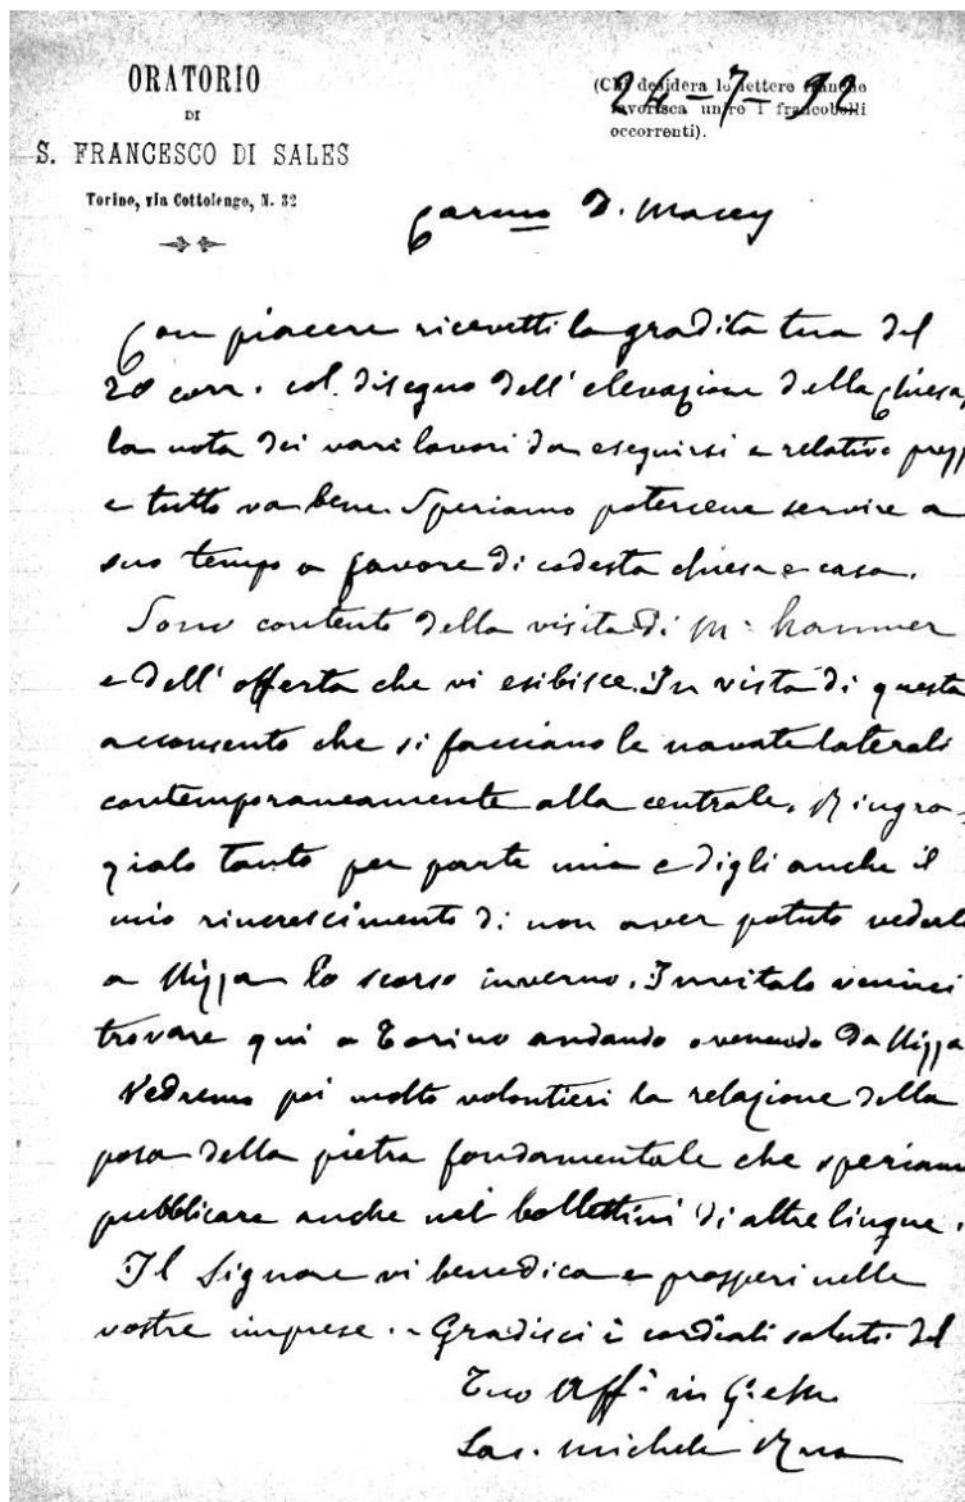 ORATORIO
DI
S. FRANCESCO DI SALES
Torino, via Cottolengo, N. 32
(Chi desidera le lettere franche
favorisca unire i francobolli
occorrenti).
24-7-92
Carmo D. Macey
Con piacere ricevetti la gradita tua del
20 corr. col disegno dell' elevazione della chiesa,
la nota dei vari lavori da eseguirsi e relativo prezz
e tutto va bene. Speriamo potercene servire a
suo tempo a favore di codesta chiesa e casa.
Sono contento della visita di Mr
e dell' offerta che vi esibisce. In vista di questa
acconsento che si facciano le navate laterali
contemporaneamente alla centrale. Ringra-
zialo tanto per parte mia e digli anche il
mio rincrescimento di non aver potuto vederlo
a Nizza lo scorso inverno. Invitalo venirci
trovare qui a Torino andando o venendo da Nizza
Vedremo poi molto volontieri la relazione della
posa della pietra fondamentale che speriamo
pubblicare anche nei bollettini di altre lingue.
Il Signore vi benedica e prosperi nelle
vostre imprese. - Gradisci i cordiali saluti del
Tuo Aff.o in G. e M.
Sac. Michele Rua